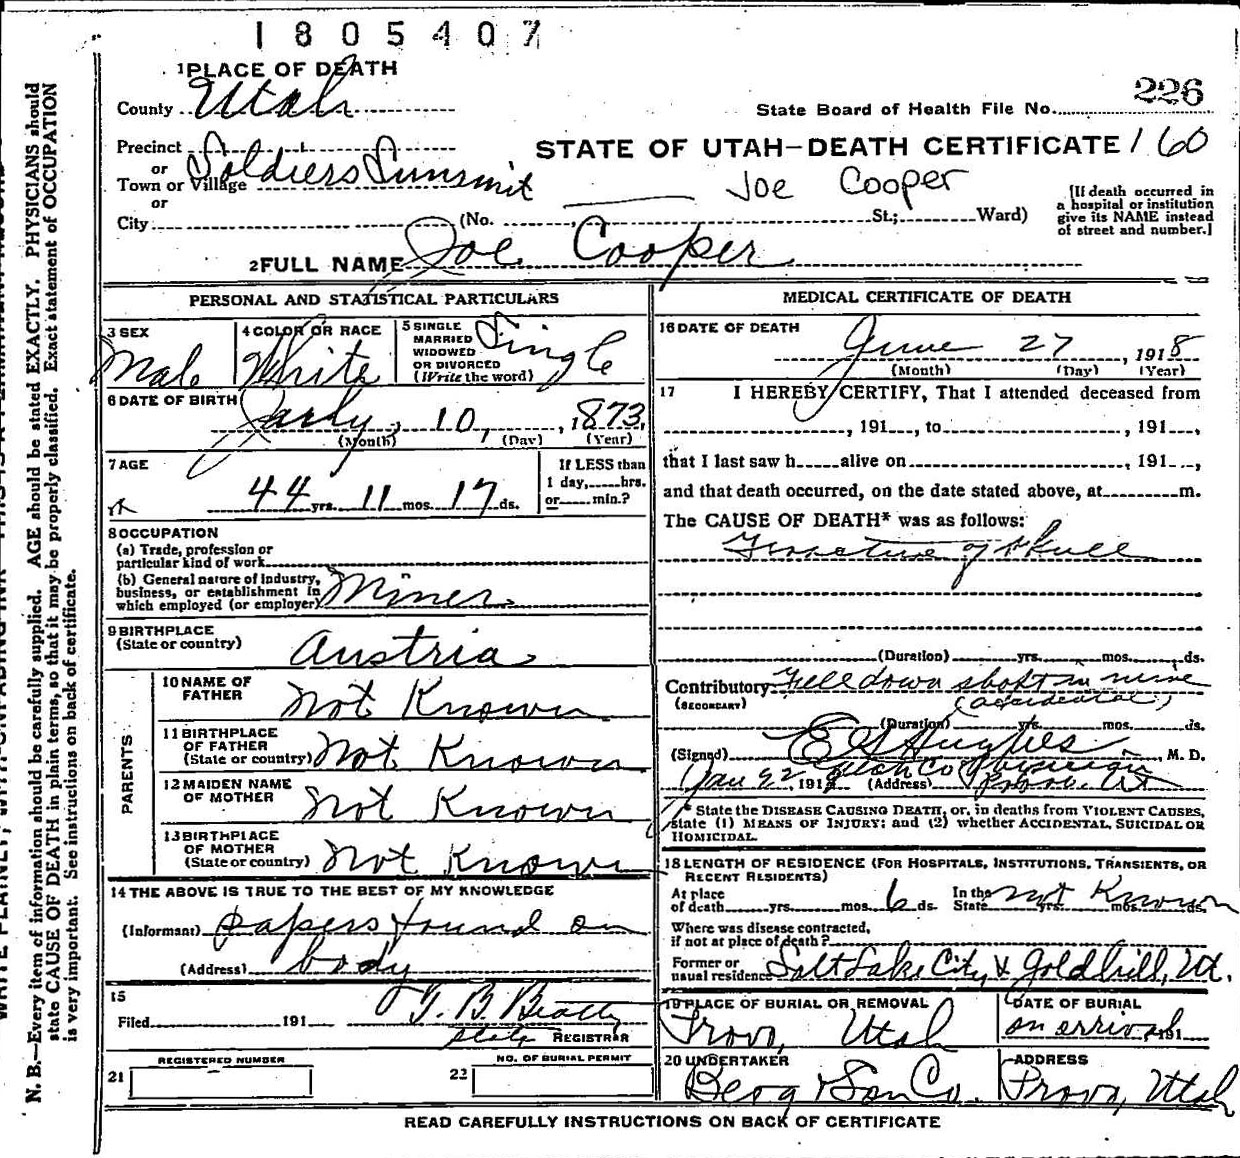 1805407
1 PLACE OF DEATH
County Utah
State Board of Health File No. 226
Precinct
or
Town or Village Soldiers Summit
STATE OF UTAH—DEATH CERTIFICATE 160
Joe Cooper
or
City (No. St.; Ward)
[If death occurred in
a hospital or institution
give its NAME instead
of street and number.]
2 FULL NAME Joe Cooper
PERSONAL AND STATISTICAL PARTICULARS
3 SEX
Male
4 COLOR OR RACE
White
5 SINGLE
MARRIED
WIDOWED
OR DIVORCED
(Write the word)
Single
6 DATE OF BIRTH
July 10, 1873
(Month) (Day) (Year)
7 AGE
44 yrs. 11 mos. 17 ds.
If LESS than
1 day, hrs.
or min.?
8 OCCUPATION
(a) Trade, profession or
particular kind of work
(b) General nature of industry,
business, or establishment in
which employed (or employer) Miner
9 BIRTHPLACE
(State or country) Austria
PARENTS
10 NAME OF
FATHER Not Known
11 BIRTHPLACE
OF FATHER
(State or country) Not Known
12 MAIDEN NAME
OF MOTHER Not Known
13 BIRTHPLACE
OF MOTHER
(State or country) Not Known
14 THE ABOVE IS TRUE TO THE BEST OF MY KNOWLEDGE
(Informant) papers found on
(Address) body
15
Filed 191 T. B. Beatty
State REGISTRAR
REGISTERED NUMBER
21
NO. OF BURIAL PERMIT
22
MEDICAL CERTIFICATE OF DEATH
16 DATE OF DEATH
June 27, 1918
(Month) (Day) (Year)
17 I HEREBY CERTIFY, That I attended deceased from
, 191 , to , 191 ,
that I last saw h alive on , 191 ,
and that death occurred, on the date stated above, at m.
The CAUSE OF DEATH* was as follows:
Fracture of Skull
(Duration) yrs. mos. ds.
Contributory Fell down shaft in mine
(SECONDARY) (accidental)
(Duration) yrs. mos. ds.
(Signed) E G Hughes, M. D.
191 (Address) Provo. Ut
* State the DISEASE CAUSING DEATH, or, in deaths from VIOLENT CAUSES,
state (1) MEANS OF INJURY; and (2) whether ACCIDENTAL, SUICIDAL OR
HOMICIDAL.
18 LENGTH OF RESIDENCE (FOR HOSPITALS, INSTITUTIONS, TRANSIENTS, OR
RECENT RESIDENTS)
At place
of death yrs. mos. 6 ds.
In the
State yrs. mos. ds. Not Known
Where was disease contracted,
if not at place of death?
Former or
usual residence Salt Lake City & Goldhill, Ut.
19 PLACE OF BURIAL OR REMOVAL
Provo, Utah
DATE OF BURIAL
on arrival 191
20 UNDERTAKER
Berg & Son Co.
ADDRESS
Provo, Utah
READ CAREFULLY INSTRUCTIONS ON BACK OF CERTIFICATE
N. B.—Every item of information should be carefully supplied. AGE should be stated EXACTLY. PHYSICIANS should
state CAUSE OF DEATH in plain terms, so that it may be properly classified. Exact statement of OCCUPATION
is very important. See instructions on back of certificate.